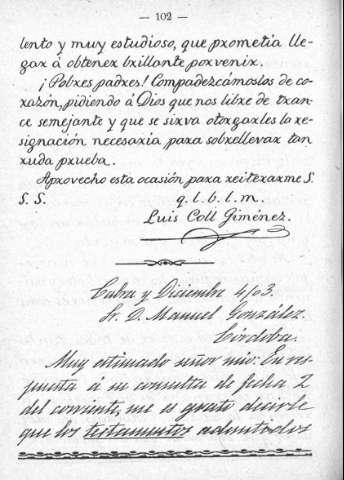 — 102 —
lento y muy estudioso, que prometia lle-
gar á obtener brillante porvenir.
¡Pobres padres! Compadezcámoslos de co-
razón, pidiendo á Dios que nos libre de tran-
ce semejante y que se sirva otorgarles la re-
signación necesaria para sobrellevar tan
ruda prueba.
Aprovecho esta ocasión para reiterarme S.
S. S. q. l. b. l. m.
Luis Coll Giménez.
Cabra y Diciembre 4/03.
Sr. D. Manuel González.
Córdoba.
Muy estimado señor mio: En res-
puesta á su consulta de fecha 2
del corriente, me es grato decirle
que los testamentos